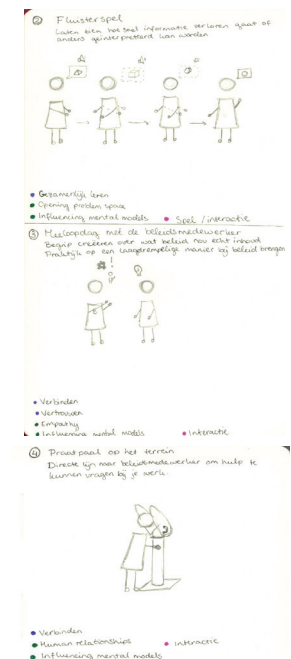 ② Fluisterspel
Laten zien hoe snel informatie verloren gaat of
anders geïnterpreteerd kan worden
Gezamenlijk leren
Opening problem space
Influencing mental models
Spel / interactie
③ Meeloopdag met de beleidsmedewerker
Begrip creëren over wat beleid nou echt inhoud
Praktijk op een laagdrempelige manier bij beleid brengen
!
Verbinden
Vertrouwen
Empathy
Influencing mental models
Interactie
④ Praatpaal op het terrein
Directe lijn naar beleidsmedewerker om hulp te
kunnen vragen bij je werk
Verbinden
Human relationships
Interactie
Influencing mental models